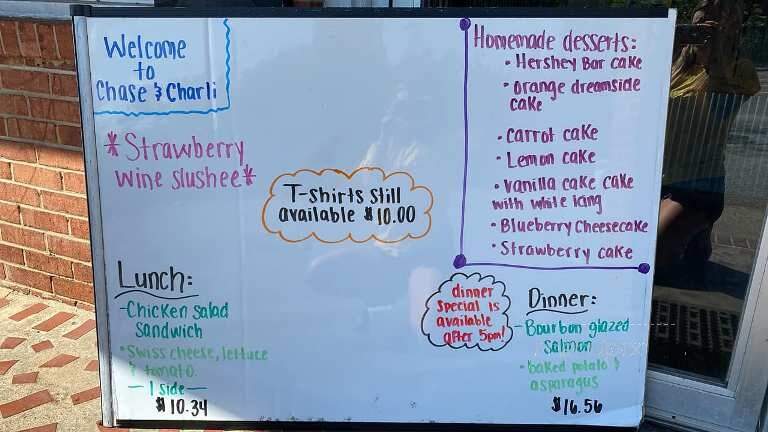 Welcome
to
Chase & Charli
*Strawberry
wine slushee*
T-shirts still
available $10.00
Homemade desserts:
• Hershey Bar cake
• orange dreamside
cake
• carrot cake
• Lemon cake
• vanilla cake cake
with white icing
• Blueberry Cheesecake
• Strawberry cake
Lunch:
-Chicken salad
sandwich
• Swiss cheese, lettuce
& tomato
— 1 side —
$10.34
dinner
special is
available
after 5pm!
Dinner:
-Bourbon glazed
salmon
• baked potato &
asparagus
$16.56